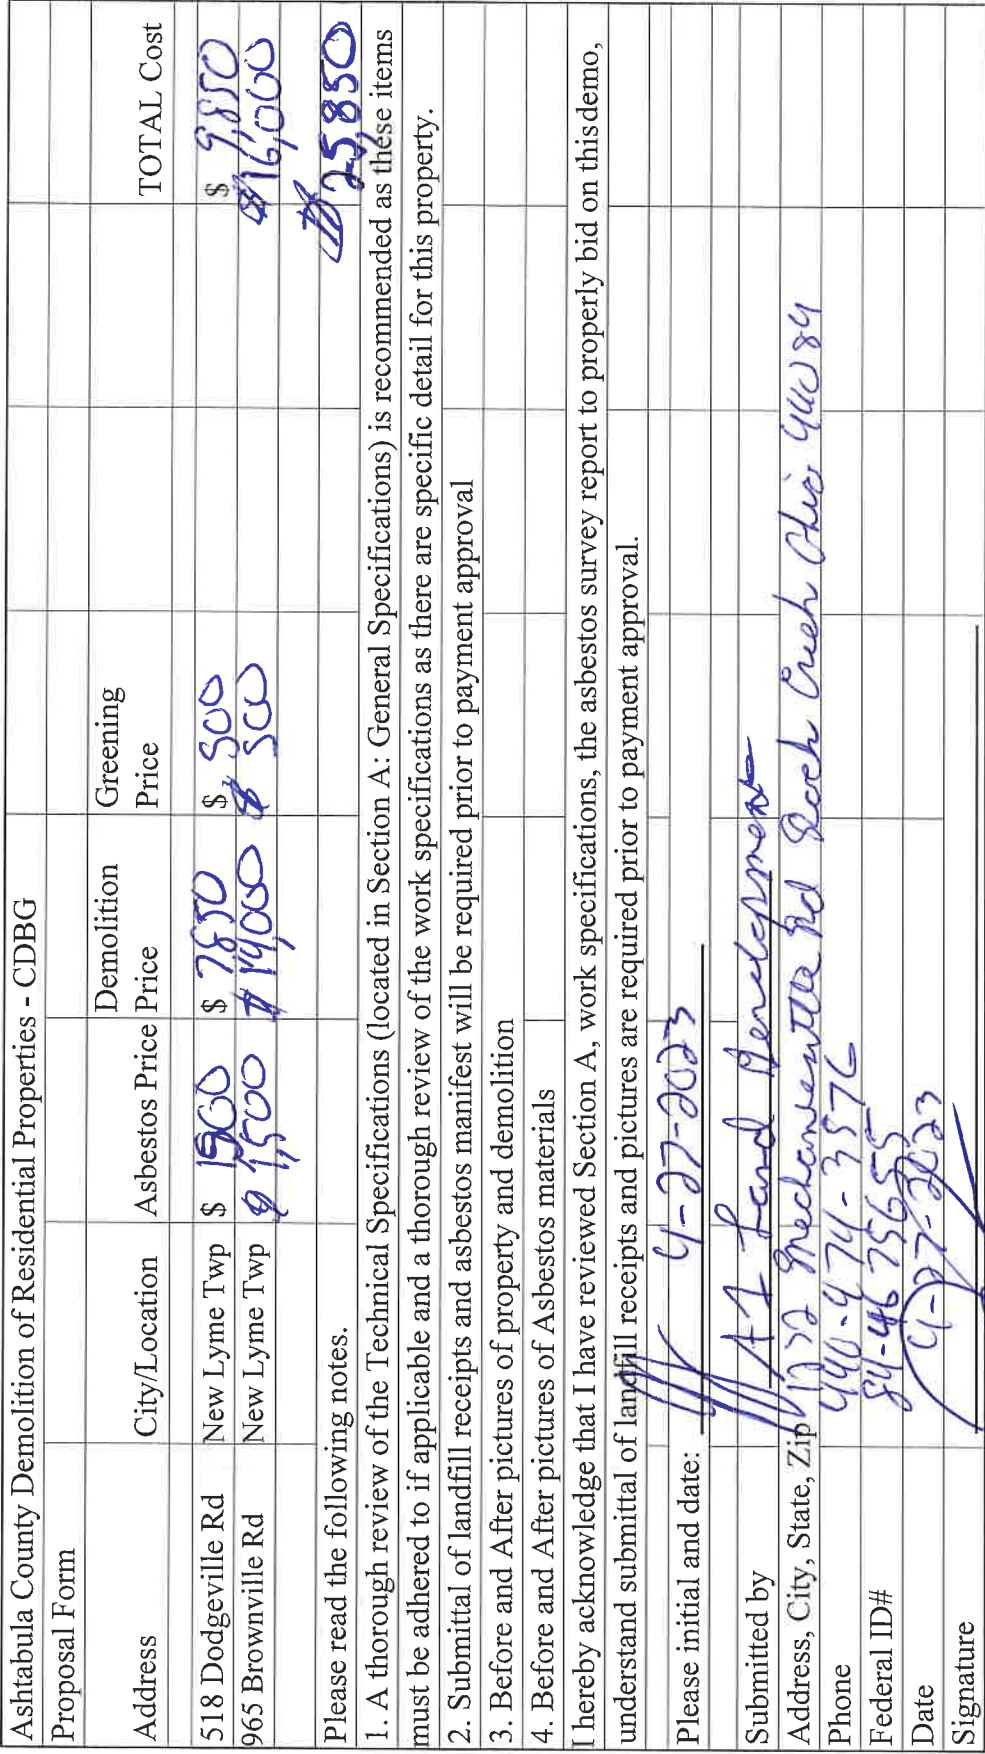 Ashtabula County Demolition of Residential Properties - CDBG
Proposal Form
Address City/Location Asbestos Price Demolition Price Greening Price TOTAL Cost
518 Dodgeville Rd New Lyme Twp $ 1500 $ 7850 $ 500 $ 9,850
965 Brownville Rd New Lyme Twp $ 1,500 $ 14,000 $ 500 $16,000
$ 25,850
Please read the following notes.
1. A thorough review of the Technical Specifications (located in Section A: General Specifications) is recommended as these items
must be adhered to if applicable and a thorough review of the work specifications as there are specific detail for this property.
2. Submittal of landfill receipts and asbestos manifest will be required prior to payment approval
3. Before and After pictures of property and demolition
4. Before and After pictures of Asbestos materials
I hereby acknowledge that I have reviewed Section A, work specifications, the asbestos survey report to properly bid on thisdemo,
understand submittal of landfill receipts and pictures are required prior to payment approval.
Please initial and date: 4-27-2023
Submitted by A1 Land Development
Address, City, State, Zip Mechanicsville Rd Rock Creek Ohio 44084
Phone 440-474-3576
Federal ID# 84-4675655
Date 4-27-2023
Signature